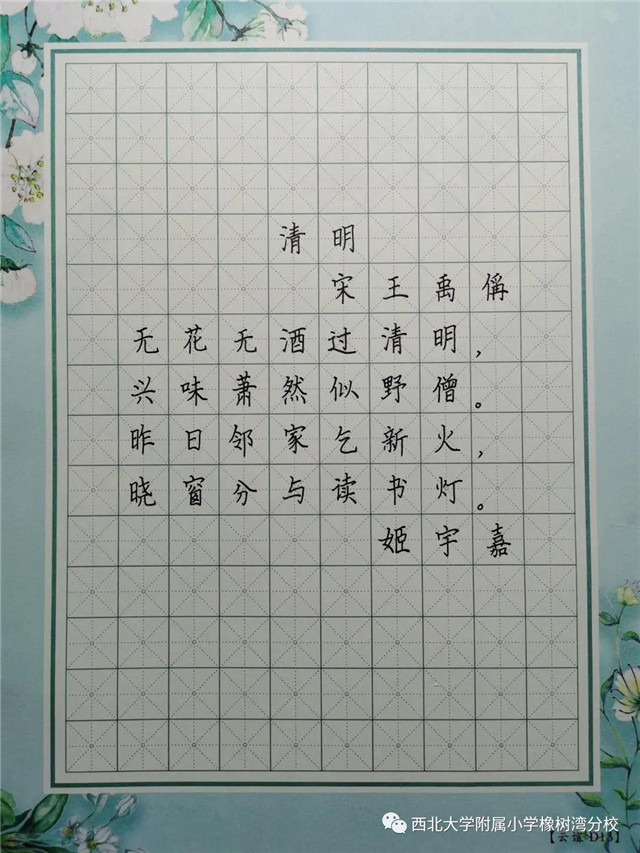 清明
宋 王禹偁
无花无酒过清明，
兴味萧然似野僧。
昨日邻家乞新火，
晓窗分与读书灯。
姬宇嘉
西北大学附属小学橡树湾分校